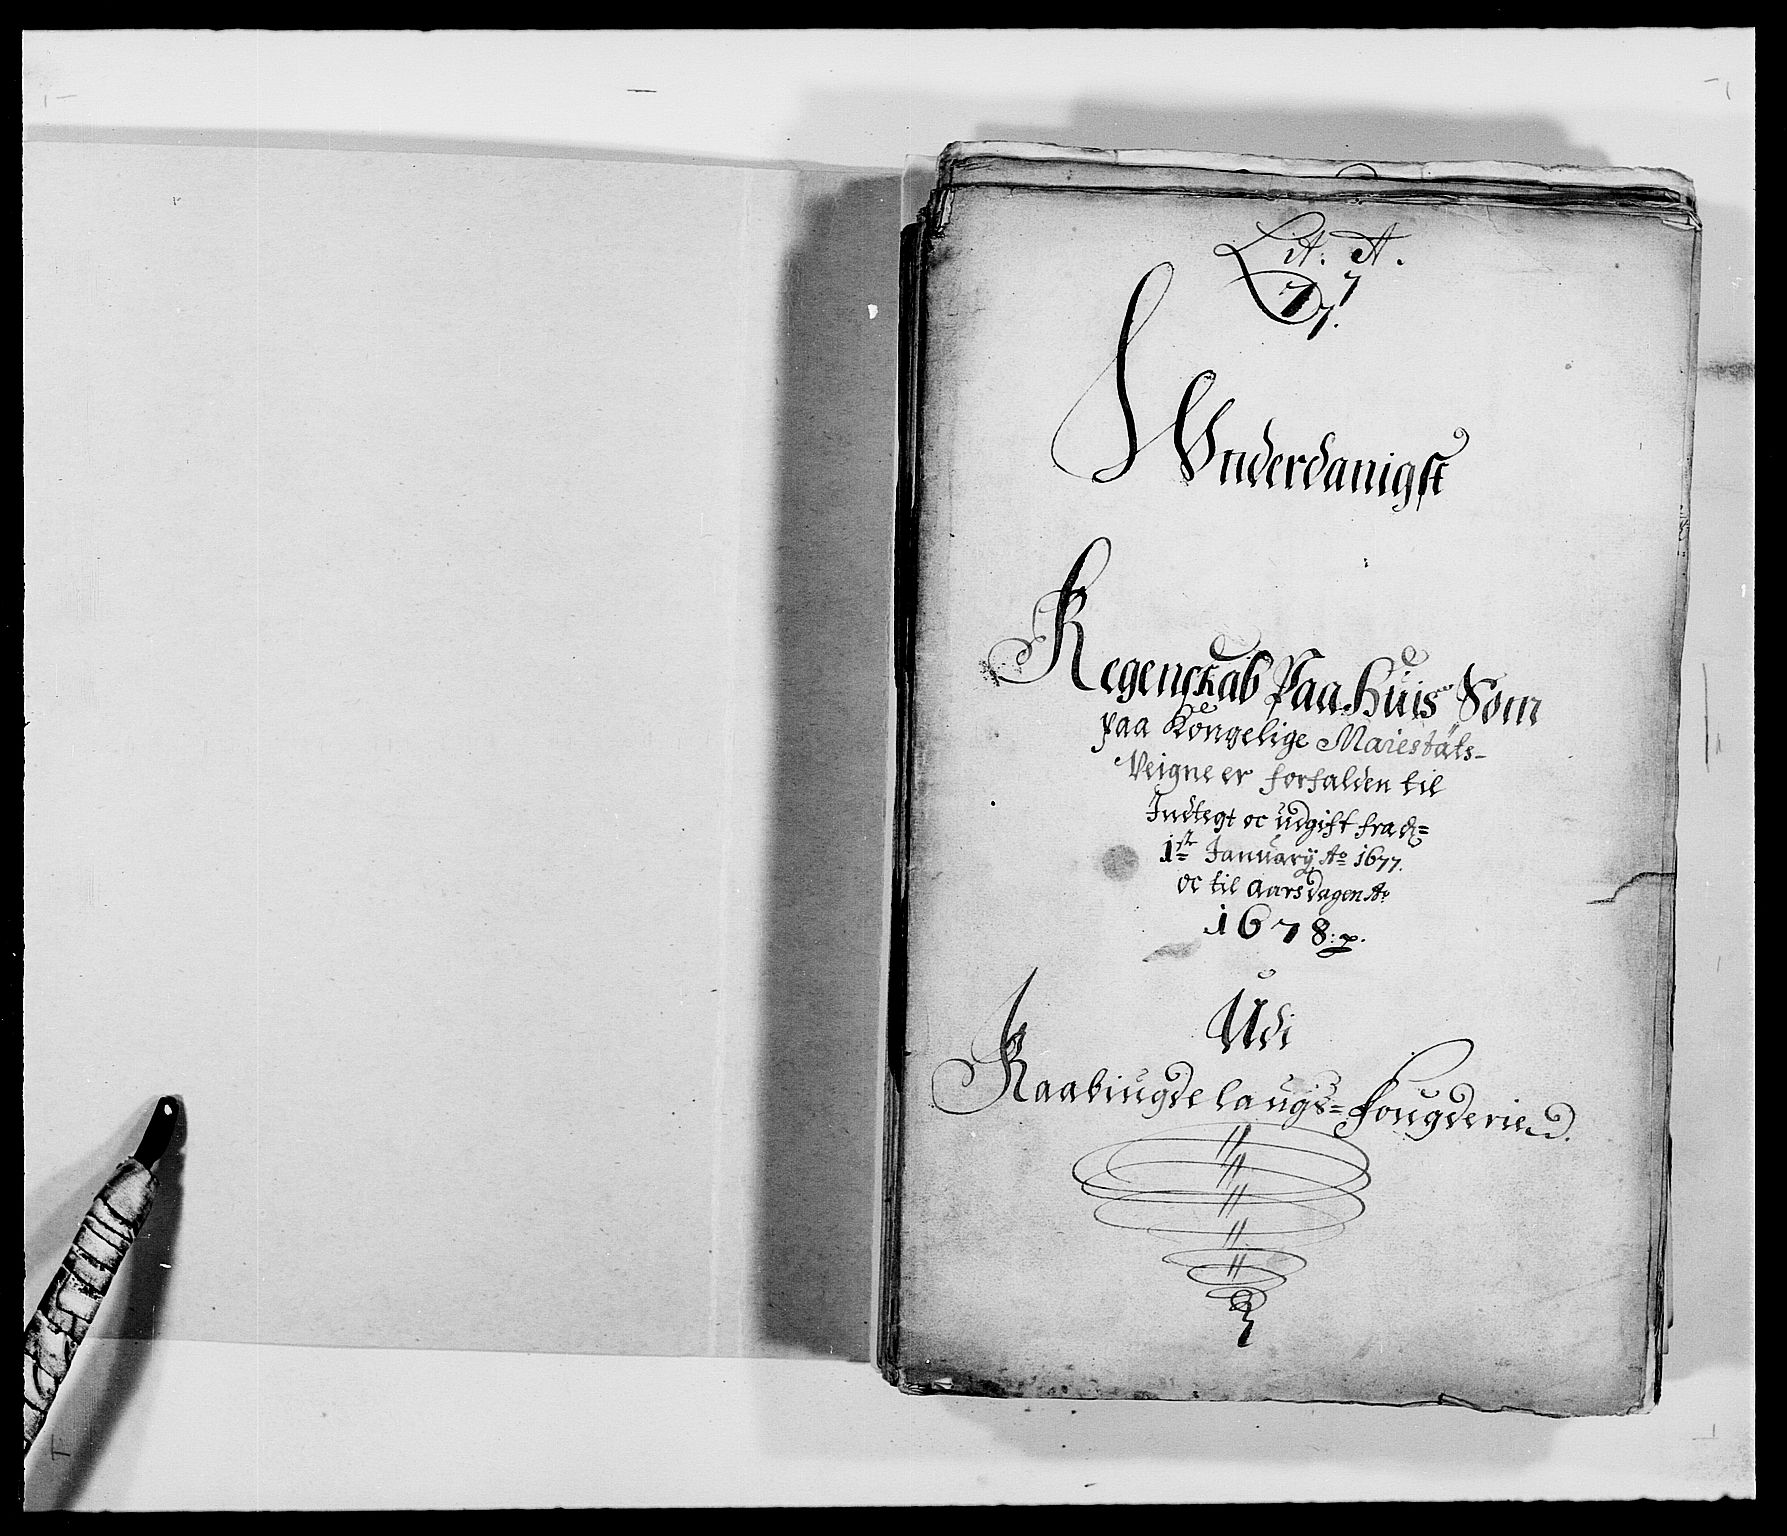 Lit. A.
7 7
7.
Wnderdanigst
Regenskab Paa Huis Som
paa Kongelige Maiestäts-
Veigne er forfalden til
Indtegt oc udgift fra d=
1st January Ao 1677.
oc til Aarsdagen Ao
1678:
Udi
Raabiugdelaugs=Fougderie